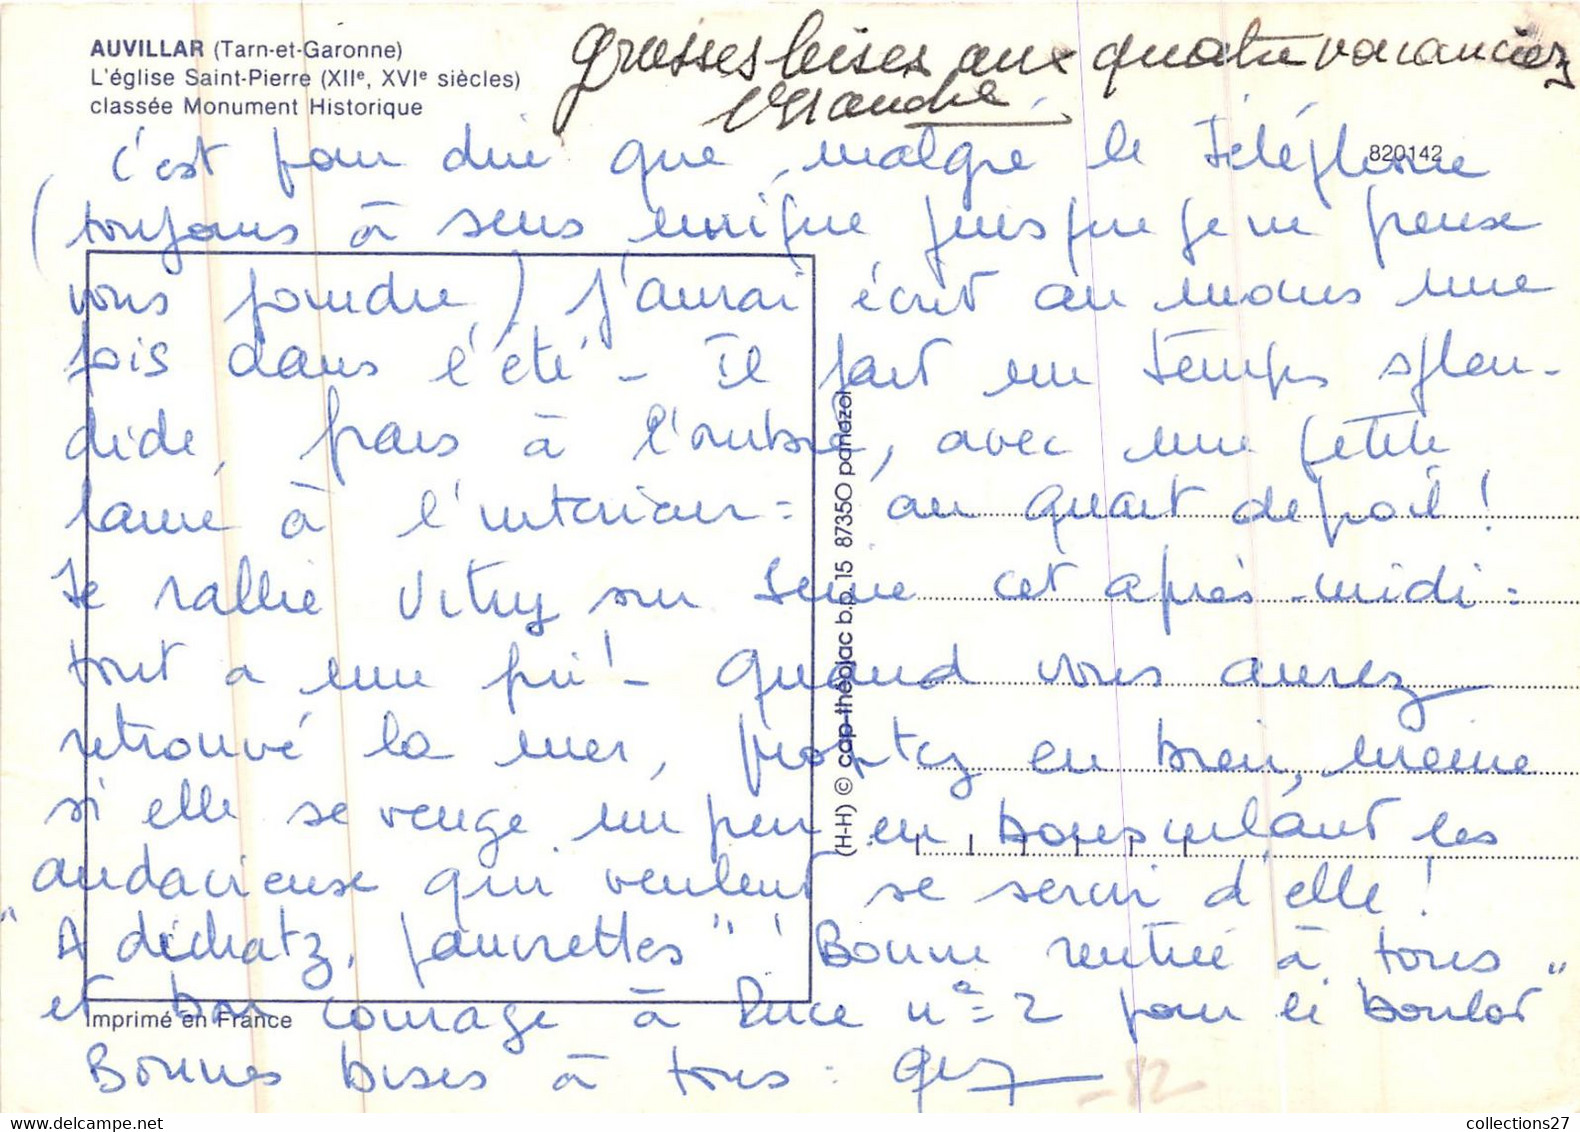 AUVILLAR (Tarn-et-Garonne)
L'église Saint-Pierre (XIIe, XVIe siècles)
classée Monument Historique
grosses bises aux quatre vacanciez
820142
c'est pour dire que, malgré le téléphone
(toujours à sens unique puisque je ne peux
vous joindre,) j'aurai écrit au moins une
fois dans l'été - Il fait un temps splen-
dide, frais à l'ombre, avec une petite
laine à l'intérieur = au quart de poil !
Je rallie Vitry sur Seine cet après-midi =
tout a une fin ! - Quand vous aurez
retrouvé la mer, profitez en bien, même
si elle se venge un peu en bousculant les
audacieux qui veulent se servir d'elle !
"A dichatz, pauvrettes" ! Bonne rentrée à tous
et bon courage à Puce n° = 2 pour le "boulot"
Bonnes bises à tous :
(H-H) © cap-théojac b.p. 15 87350 panazol
Imprimé en France
-82
collections27